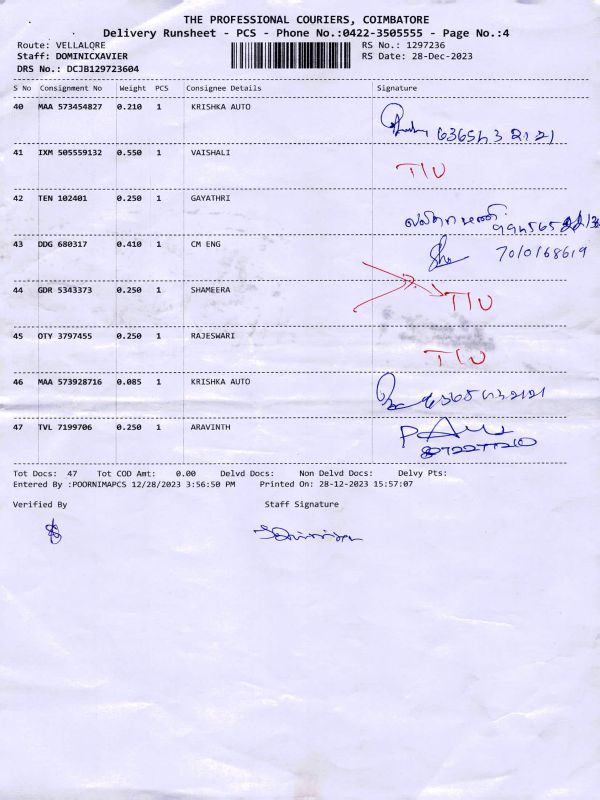 THE PROFESSIONAL COURIERS, COIMBATORE
Delivery Runsheet - PCS - Phone No.:0422-3505555 - Page No.:4
Route: VELLALORE RS No.: 1297236
Staff: DOMINICXAVIER RS Date: 28-Dec-2023
DRS No.: DCJB129723604
S No Consignment No Weight PCS Consignee Details Signature
40 MAA 573454827 0.210 1 KRISHKA AUTO
41 IXM 505559132 0.550 1 VAISHALI T/U
42 TEN 102401 0.250 1 GAYATHRI
43 DDG 680317 0.410 1 CM ENG 7010168619
44 GDR 5343373 0.250 1 SHAMEERA T/U
45 OTY 3797455 0.250 1 RAJESWARI T/U
46 MAA 573928716 0.085 1 KRISHKA AUTO
47 TVL 7199706 0.250 1 ARAVINTH
Tot Docs: 47 Tot COD Amt: 0.00 Delvd Docs: Non Delvd Docs: Delvy Pts:
Entered By :POORNIMAPCS 12/28/2023 3:56:50 PM Printed On: 28-12-2023 15:57:07
Verified By Staff Signature